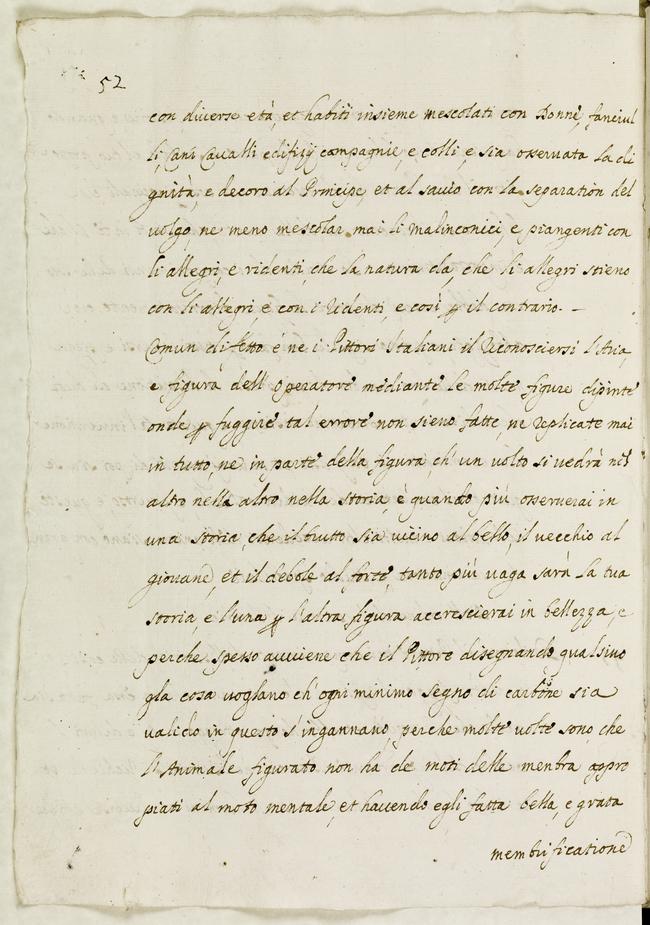 52
con diverse età, et habiti insieme mescolati con Donne, fanciul
li, Cani Cavalli edifizij compagnie, e colli, e sia osservata la di
gnità, e decoro al Principe, et al savio con la separation del
volgo, ne meno mescolar mai li malinconici, e piangenti con
li allegri, e ridenti, che la natura da, che li allegri stieno
con li allegri, e con i ridenti, e così p il contrario. –
Comun difetto è ne i Pittori Italiani il riconosciersi l'Aria,
e figura dell' operatore mediante le molte figure dipinte
onde p fuggire tal errore non sieno fatte, ne replicate mai
in tutto, ne in parte della figura, ch' un volto si vedrà nell
altro nella altro nella storia, è quando più osserverai in
una storia, che il brutto sia vicino al bello, il vecchio al
giovane, et il debole al forte, tanto più vaga sarà la tua
storia, e l'una p l'altra figura accrescierai in bellezza, e
perche spesso avviene che il Pittore disegnando qualsivo
gla cosa voglano ch' ogni minimo segno di carbone sia
valido in questo s'ingannano, perche molte volte sono, che
l'Animale figurato non ha de moti delle menbra appro
piati al moto mentale, et havendo egli fatta bella, e grata
membrificatione